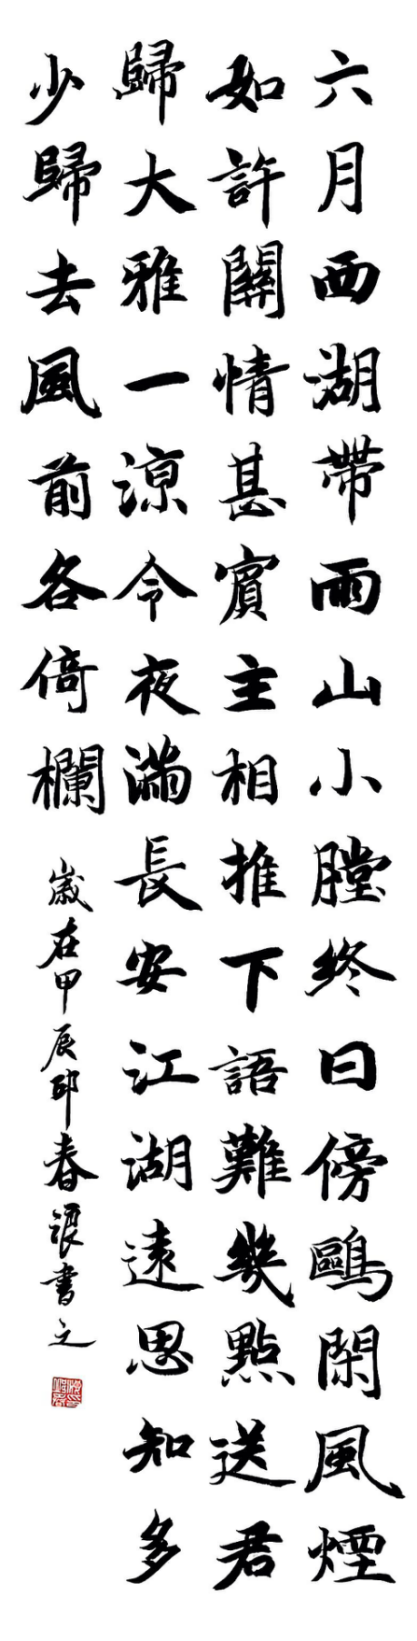 六月西湖帶雨山小牕終日傍鷗閑風煙
如許關情甚賓主相推下語難幾點送君
歸大雅一涼今夜滿長安江湖遠思知多
少歸去風前各倚欄
歲在甲辰仰春銀書之